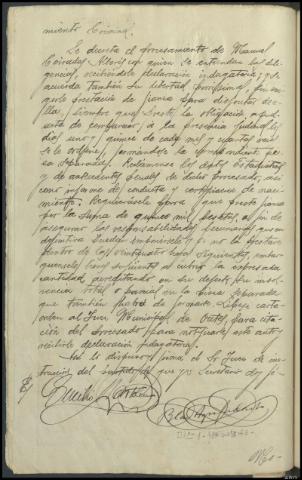 miento Criminal.
Se decreta el procesamiento de Manuel
con quien se entenderán las dili-
gencias, recibiéndole declaración indagatoria; y se
acuerda también su libertad provisional, sin exi-
girle prestación de fianza para disfrutar de e-
lla, siempre que preste la obligación, apud acta
de comparecer, en la presencia judicial, los
días uno y quince de cada mes y cuantas veces
se le ordene, formándose la correspondiente pie-
za separada. Reclámense los
y de antecedentes penales de dicho procesado, así
como informe de conducta y certificación de naci-
miento. Requiérasele para que preste fianza
por la suma de quince mil pesetas, al fin de
asegurar las responsabilidades pecuniarias que en
definitiva puedan imponérsele y si no la prestare
dentro de las veinticuatro horas siguientes, embár-
guensele bienes suficientes a cubrir la expresada
cantidad, acreditando en su defecto su insol-
vencia total o parcial en la pieza separada
que también habrá de formarse. Líbrese carta-
orden al Juez Municipal de para cita-
ción del procesado para notificarle este auto y
recibirle declaración indagatoria.
Así lo dispuso y firma el Sr Juez de ins-
trucción del partido, de que yo, Secretario doy fé.-